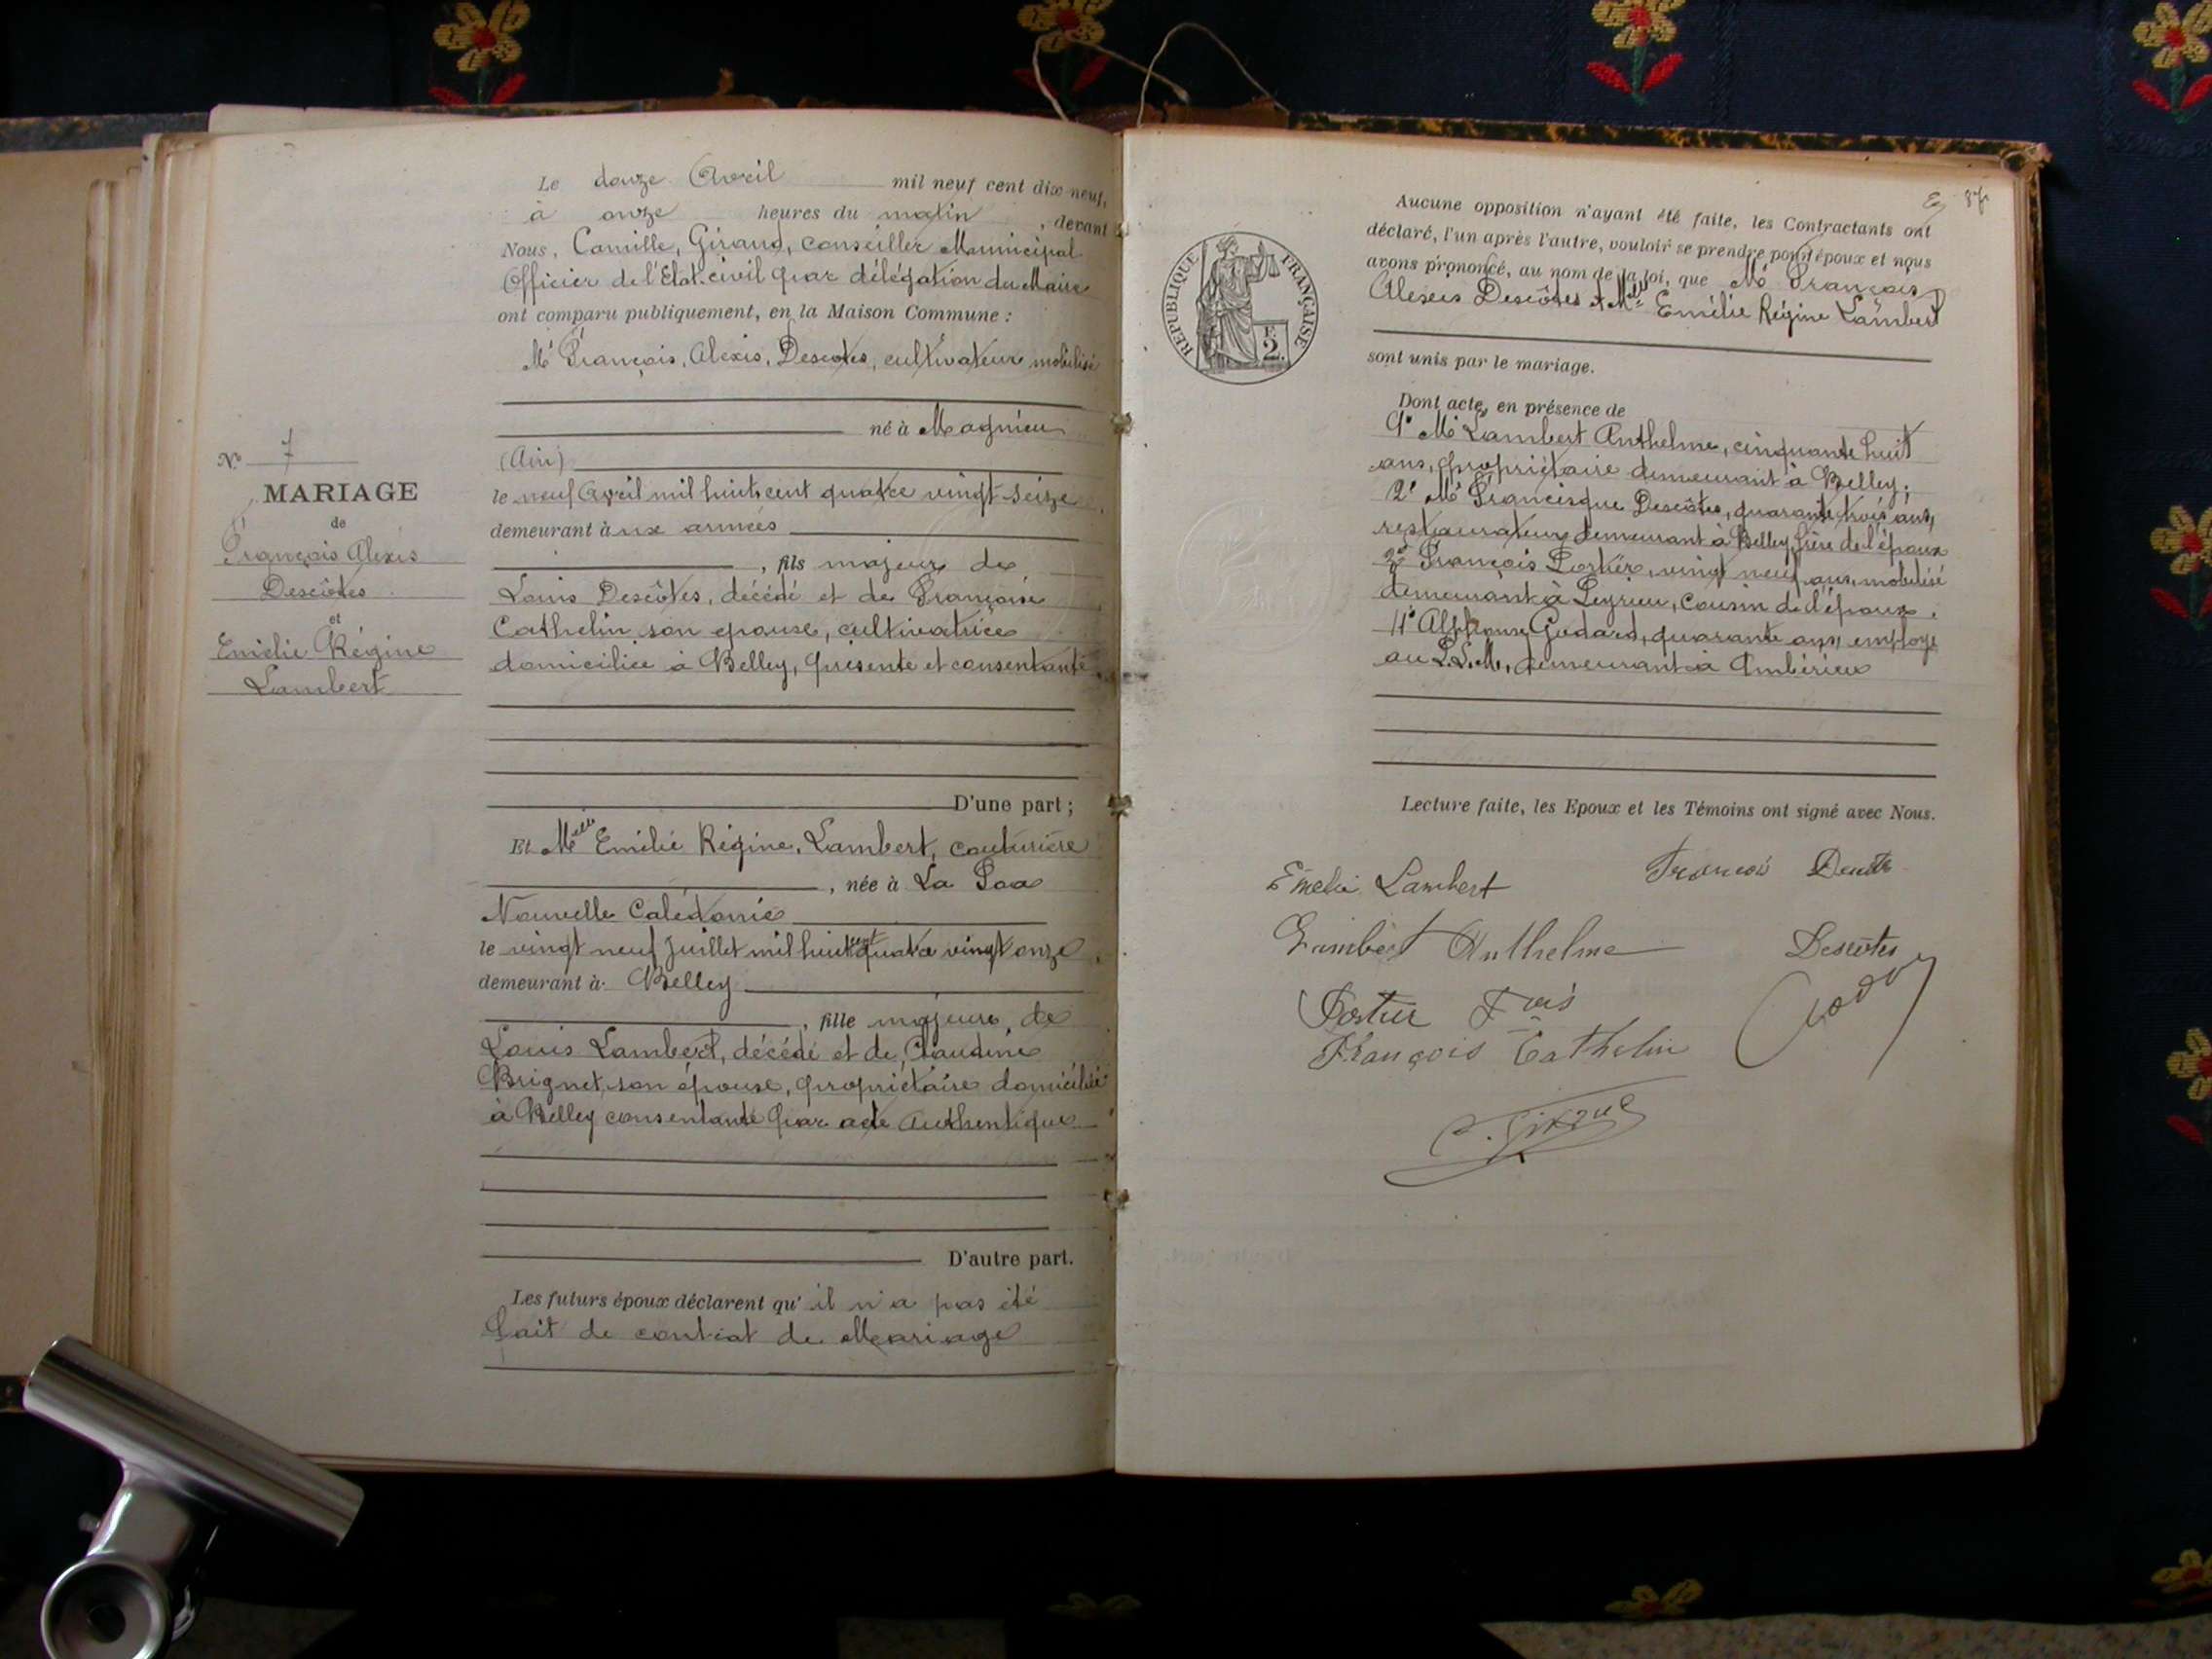 Le douze Avril mil neuf cent dix-neuf,
à onze heures du matin, devant
Nous, Camille, Giraud, conseiller Municipal
Officier de l'Etat-civil par délégation du Maire
ont comparu publiquement, en la Maison Commune :
Mr François, Alexis, Descotes, cultivateur mobilisé
né à Magnieu
(Ain)
le neuf Avril mil huit cent quatre vingt seize
demeurant à ux armées
, fils majeur de
Louis Descôtes, décédé et de Françoise
Cathelin son épouse, cultivatrice
domiciliée à Belley, présente et consentante
D'une part ;
Et Melle Emélie Régine, Lambert, couturière
, née à La Foa
Nouvelle Calédonie
le vingt neuf Juillet mil huit cent quatre vingt onze
demeurant à Belley
, fille majeure, de
Louis Lambert, décédé et de, Claudine
Brignet, son épouse, propriétaire domiciliée
à Belley consentante par acte Authentique
D'autre part.
Les futurs époux déclarent qu'il n'a pas été
fait de contrat de Mariage
N° 7
MARIAGE
de
François Alexis
Descôtes
et
Emélie Régine
Lambert
87
RÉPUBLIQUE FRANÇAISE
2
Aucune opposition n'ayant été faite, les Contractants ont
déclaré, l'un après l'autre, vouloir se prendre pour époux et nous
avons prononcé, au nom de la loi, que Mr François
Alexis Descôtes et Melle Emélie Régine Lambert
sont unis par le mariage.
Dont acte, en présence de
1° Mr Lambert Anthelme, cinquante huit
ans, propriétaire demeurant à Belley.
2° Mr Francisque Descôtes, quarante trois ans,
restaurateur demeurant à Belley, frère de l'époux
3° François Portier, vingt neuf ans, mobilisé
demeurant à Peyrieu, cousin de l'époux.
4° Alphonse Godard, quarante ans, employé
au P.L.M, demeurant à Ambérieux
Lecture faite, les Epoux et les Témoins ont signé avec Nous.
Emelie Lambert
Lambert Anthelme
Descôtes
Portier Fois
François Cathelin